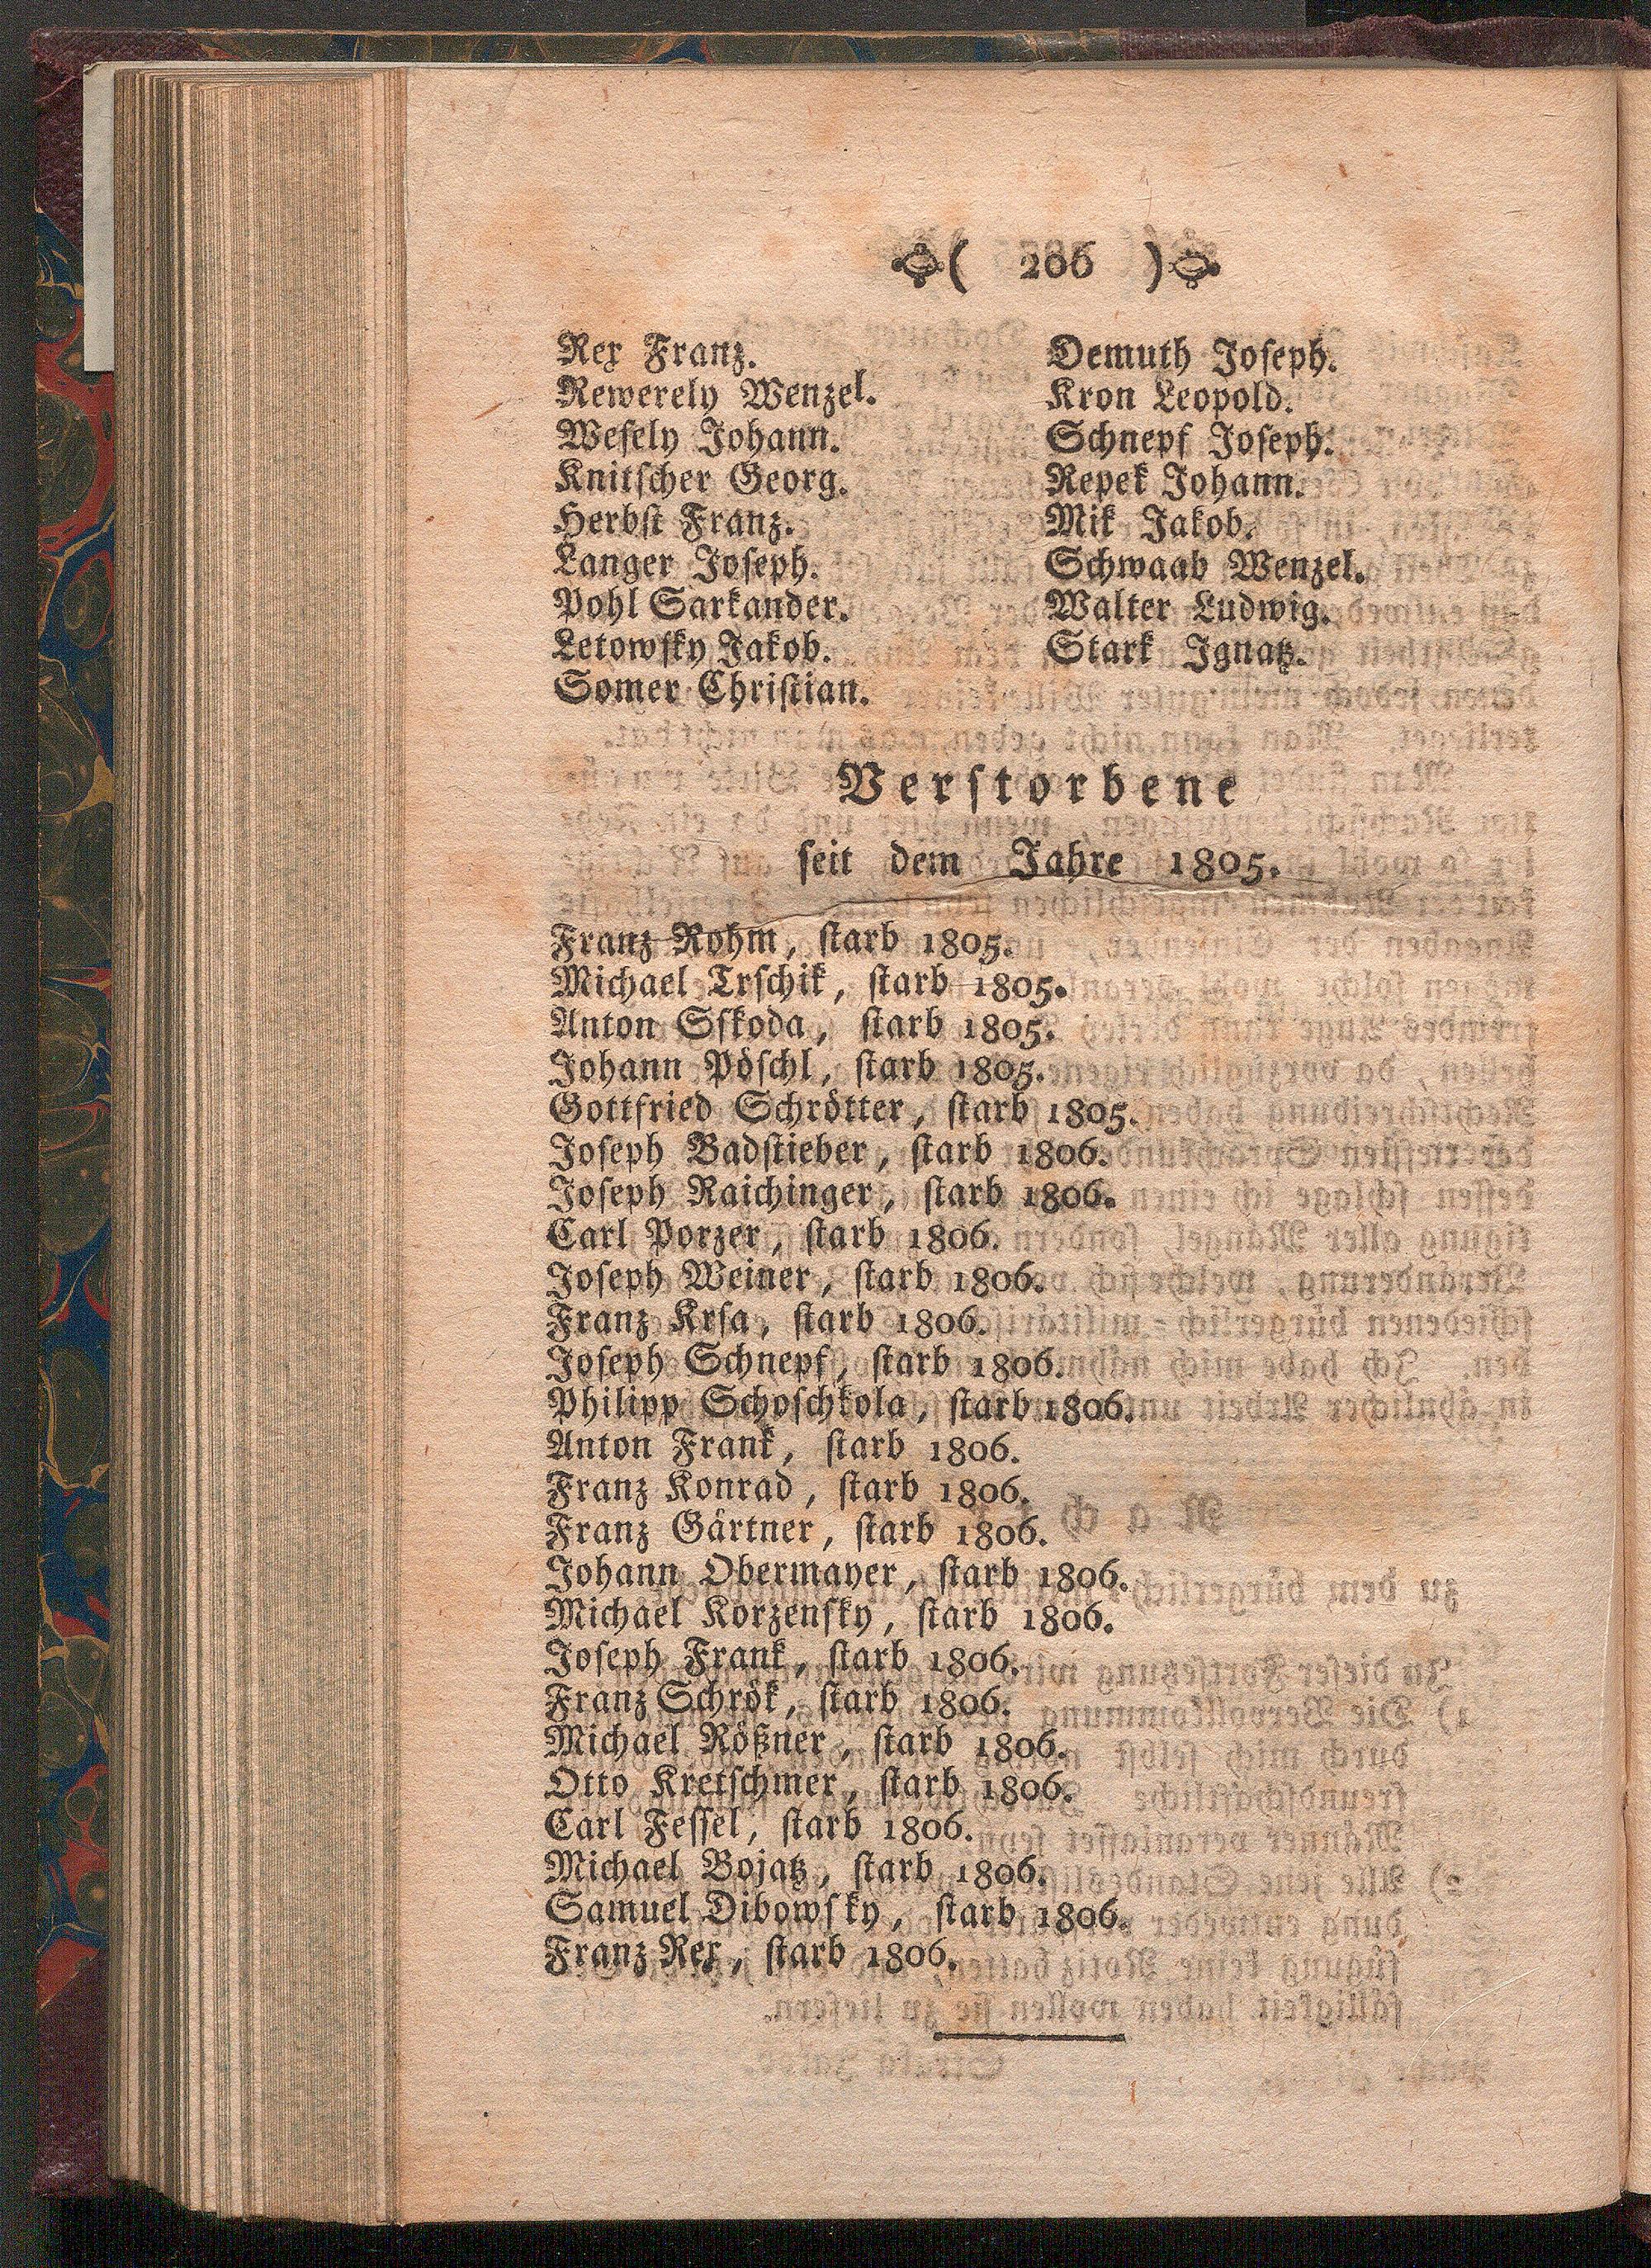 ( 206 )
Rex Franz.
Rewerely Wenzel.
Wesely Johann.
Knitscher Georg.
Herbst Franz.
Langer Joseph.
Pohl Sarkander.
Letowsky Jakob.
Somer Christian.
Demuth Joseph.
Kron Leopold.
Schnepf Joseph.
Repek Johann.
Mik Jakob.
Schwaab Wenzel.
Walter Ludwig.
Stark Ignatz.
Verstorbene
seit dem Jahre 1805.
Franz Rohm, starb 1805.
Michael Trschik, starb 1805.
Anton Sskoda, starb 1805.
Johann Pöschl, starb 1805.
Gottfried Schrötter, starb 1805.
Joseph Badstieber, starb 1806.
Joseph Raichinger, starb 1806.
Carl Porzer, starb 1806.
Joseph Weiner, starb 1806.
Franz Krsa, starb 1806.
Joseph Schnepf, starb 1806.
Philipp Schoschkola, starb 1806.
Anton Frank, starb 1806.
Franz Konrad, starb 1806.
Franz Gärtner, starb 1806.
Johann Obermayer, starb 1806.
Michael Korzensky, starb 1806.
Joseph Frank, starb 1806.
Franz Schrök, starb 1806.
Michael Rößner, starb 1806.
Otto Kretschmer, starb 1806.
Carl Fessel, starb 1806.
Michael Bojatz, starb 1806.
Samuel Dibowsky, starb 1806.
Franz Rex, starb 1806.